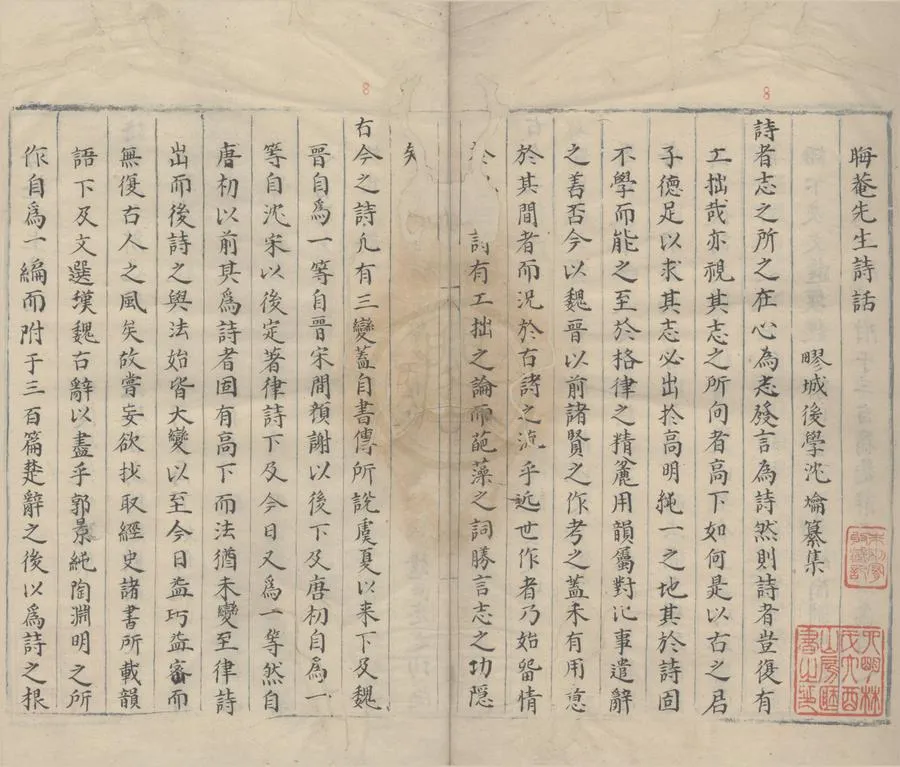 晦菴先生詩話
疁城後學沈爚纂集
詩者志之所之在心為志發言為詩然則詩者豈復有
工拙哉亦視其志之所向者高下如何是以古之君
子德足以求其志必出於高明純一之地其於詩固
不學而能之至於格律之精麄用韻屬對比事遣辭
之善否今以魏晉以前諸賢之作考之蓋未有用意
於其間者而況於古詩之流乎近世作者乃始留情
於 詩有工拙之論而葩藻之詞勝言志之功隱
矣
古今之詩凢有三變蓋自書傳所說虞夏以来下及魏
晉自爲一等自晉宋間顔謝以後下及唐初自爲一
等自沈宋以後定著律詩下及今日又爲一等然自
唐初以前其爲詩者固有高下而法猶未變至律詩
出而後詩之與法始皆大變以至今日益巧益密而
無復古人之風矣故嘗妄欲抄取經史諸書所載韻
語下及文選漢魏古辭以盡乎郭景純陶淵明之所
作自爲一編而附于三百篇楚辭之後以爲詩之根
8
8